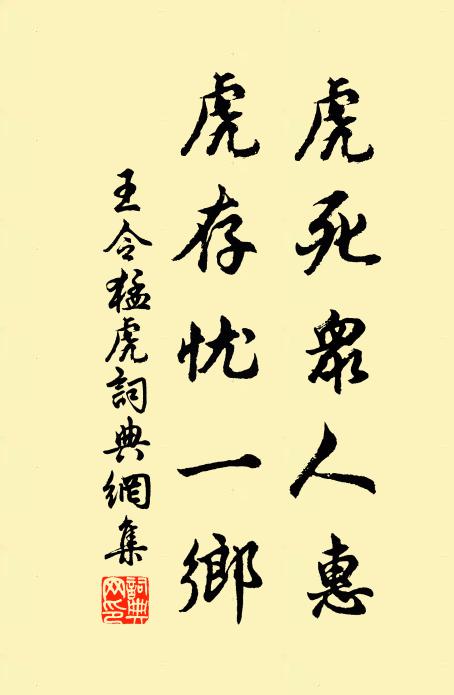 虎死眾人惠
虎存忧一鄉
王令猛虎詞典網集
詞典网印